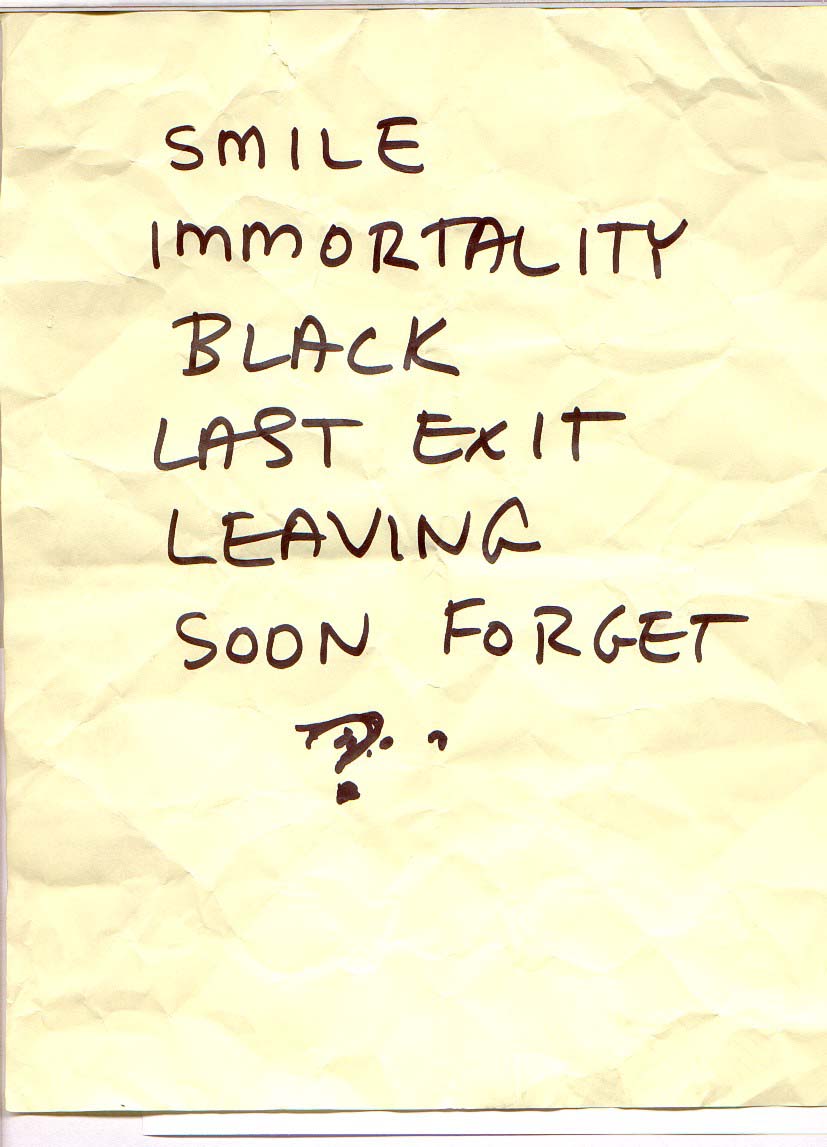 SMILE
IMMORTALITY
BLACK
LAST EXIT
LEAVING
SOON FORGET
?